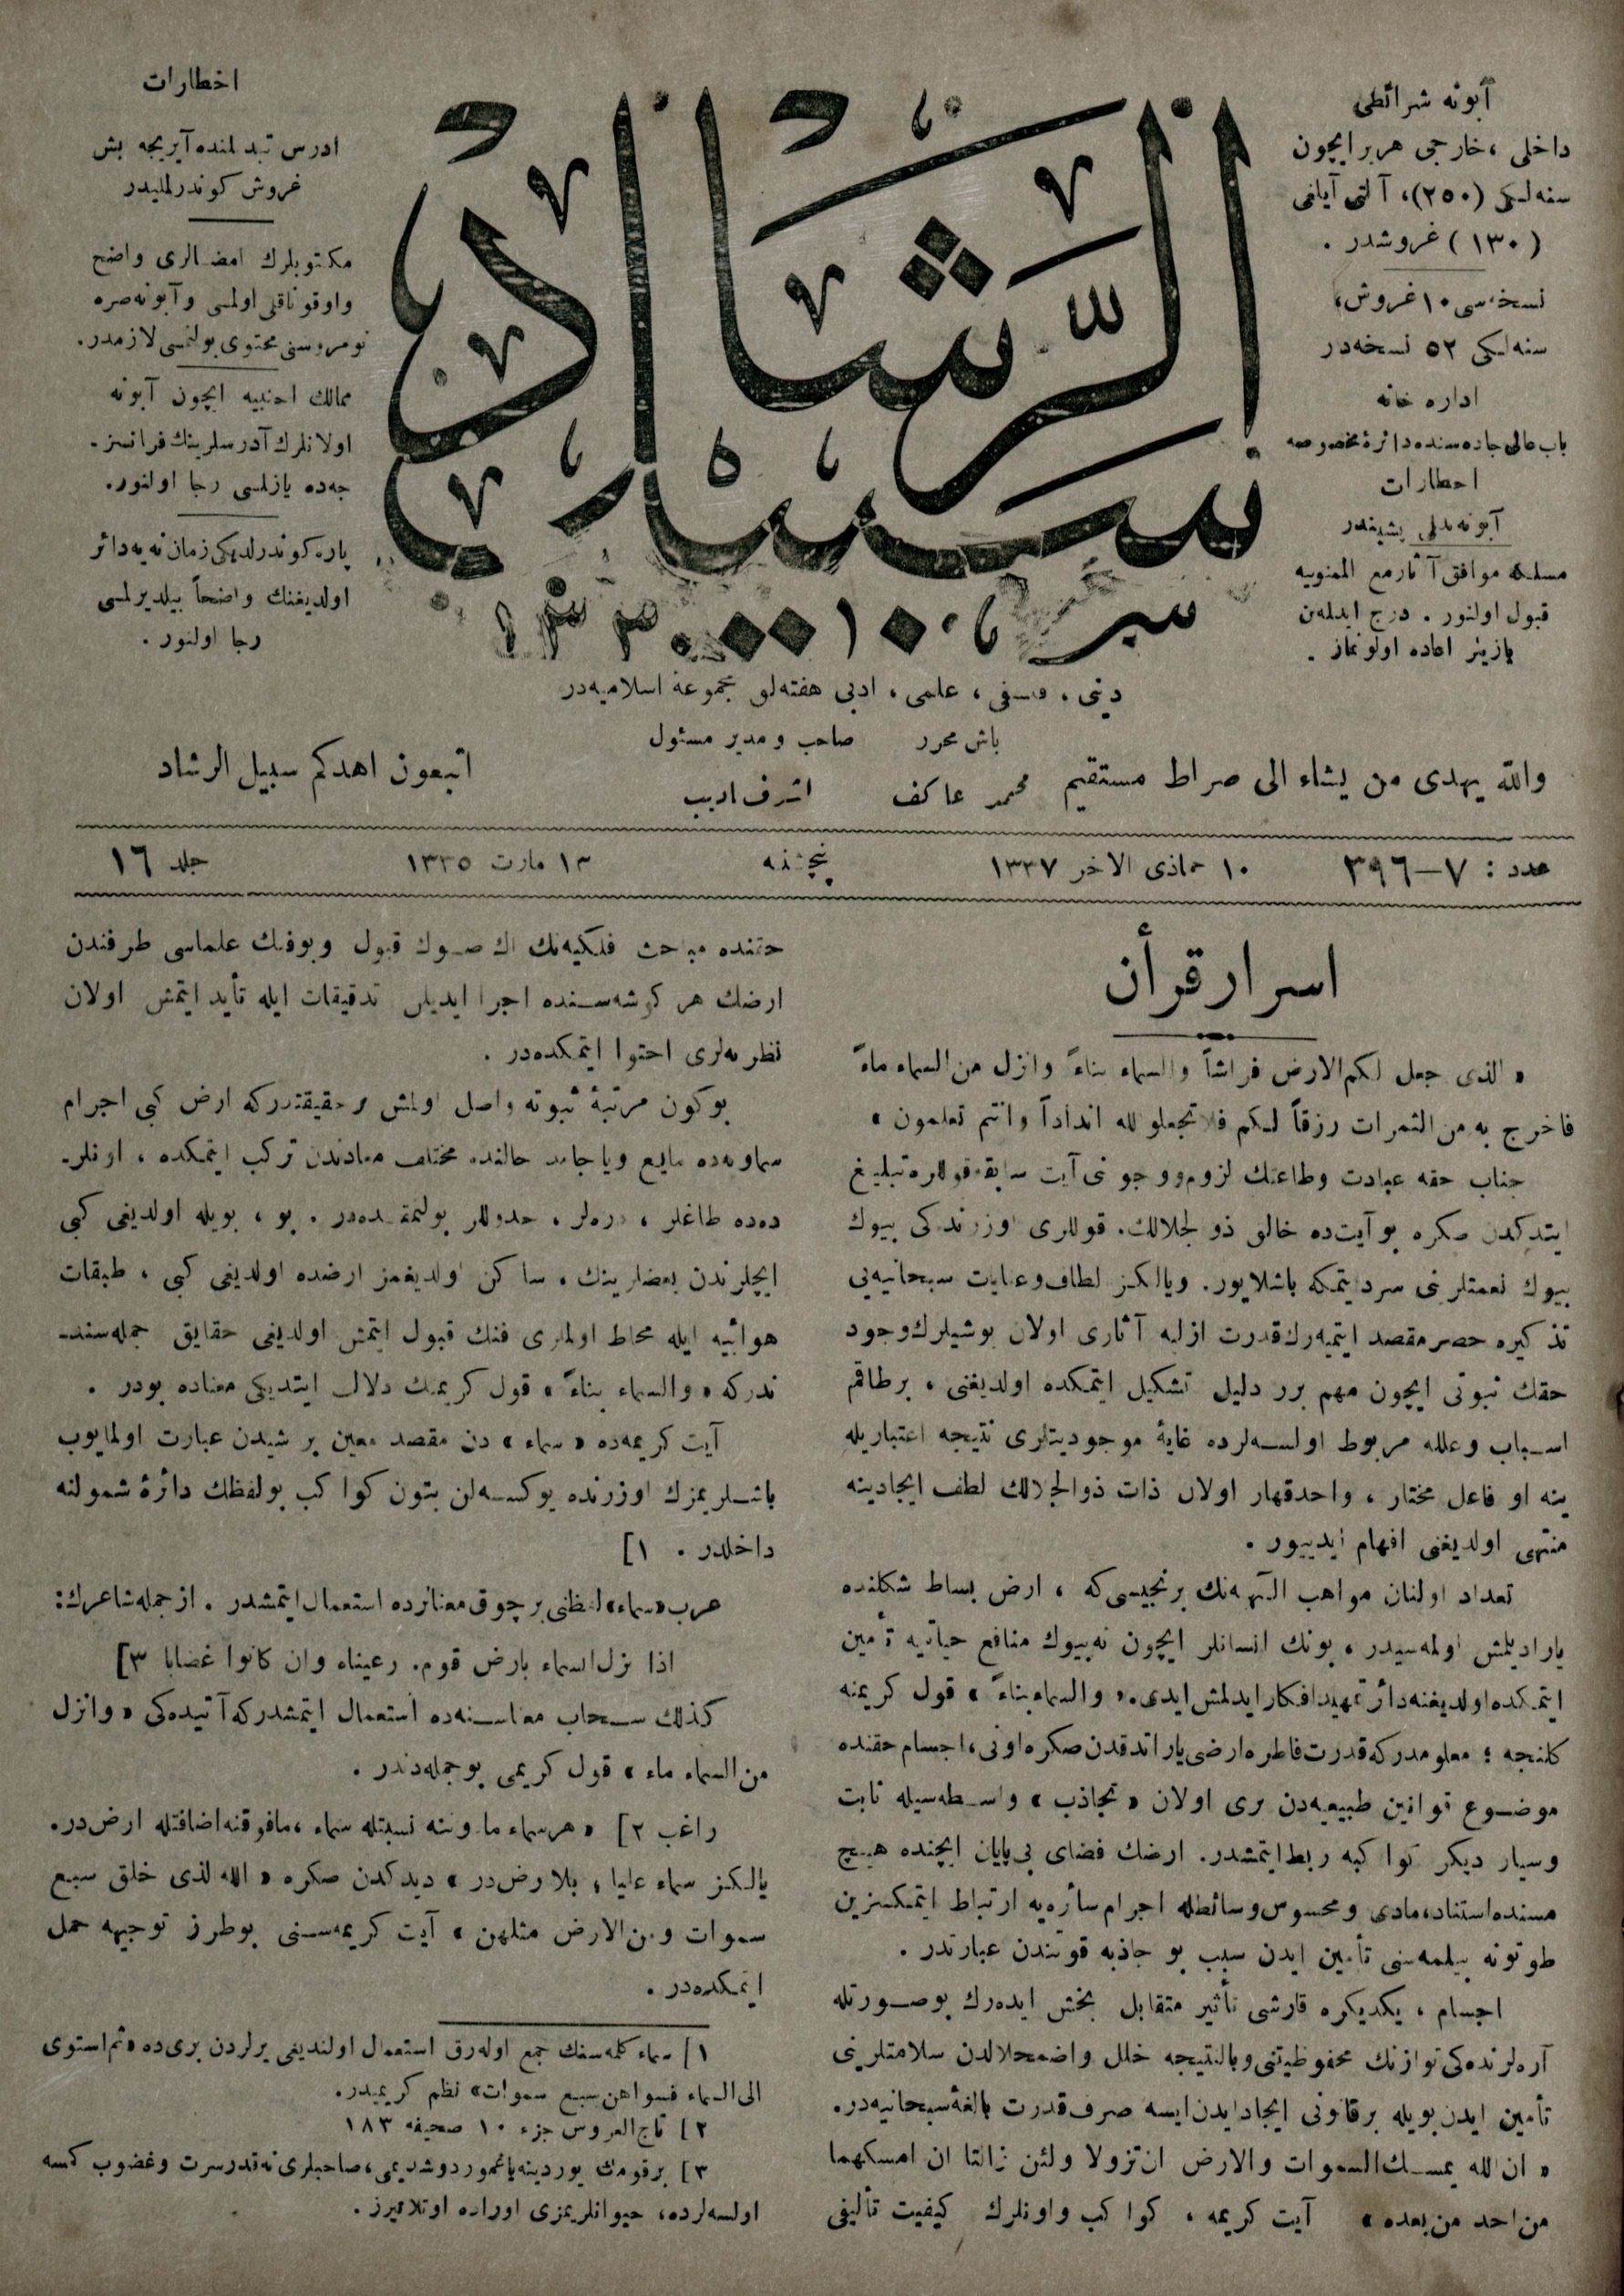 آبونه شرائطی
داخلی ، خارجی هر بر ایچون
سنه‌لكی (٢٥٠)، آلتی آیلغی
(١٣٠) غروشدر .
نسخه‌سی ١٠ غروش،
سنه‌لكی ٥٢ نسخه‌در
اداره خانه
باب عالی جاده‌سنده دائرۀ مخصوصه
اخطارات
آبونه بدلی پشیندر
مسلكه موافق آثار مع الممنونیه
قبول اولنور . درج ایدلمه‌ین
یازیلر اعاده اولونماز .
سبيل الرشاد
دینی ، فلسفی ، علمی ، ادبی هفته‌لق مجموعۀ اسلامیه‌در
باش محرر
محمد عاكف
صاحب و مدیر مسئول
اشرف ادیب
والله یهدی من یشاء الی صراط مستقیم
اتبعون اهدكم سبیل الرشاد
اخطارات
ادرس تبدلنده آیریجه بش
غروش كوندرلملیدر
مكتوبلرك امضالری واضح
و اوقوناقلی اولمسی و آبونه صره
نومروسنی محتوی بولنمسی لازمدر.
ممالك اجنبیه ایچون آبونه
اولانلرك آدرسلرینك فرانسز-
جه‌ده یازلمسی رجا اولنور.
پاره كوندرلدیكی زمان نه‌یه دائر
اولدیغنك واضحاً بیلدیرلمسی
رجا اولنور .
عدد : ٧—٣٩٦
١٠ جماذی الاخر ١٣٣٧
پنجشنبه
١٣ مارت ١٣٣٥
جلد ١٦
اسرار قرأن
« الذی جعل لكم الارض فراشاً والسماء بناءً وانزل من السماء ماءً
فاخرج به من الثمرات رزقاً لكم فلا تجعلو لله انداداً وانتم تعلمون »
جناب حقه عبادت وطاعتك لزوم ووجوبنی آیت سابقه قوللره تبلیغ
ایتدكدن صكره بو آیت‌ده خالق ذو لجلالك. قوللری اوزرندكی بیوك
بیوك نعمتلرینی سرد ایتمكه باشلایور. ویالكز لطاف وعنایت سبحانیه‌یی
تذكیره حصر مقصد ایتمیه‌رك قدرت ازلیه آثاری اولان بو شیلرك وجود
حقك ثبوتی ایچون مهم برر دلیل تشكیل ایتمكده اولدیغنی ، بر طاقم
اسباب وعلله مربوط اولسه‌لرده غایۀ موجودیتلری نتیجه اعتباریله
ینه او فاعل مختار ، واحد قهار اولان ذات ذوالجلالك لطف ایجادینه
منتهی اولدیغنی افهام ایدییور .
تعداد اولنان مواهب الٓهیه‌نك برنجیسی كه ، ارض بساط شكلنده
یارادیلمش اولمه‌سیدر ، بونك انسانلر ایچون نه بیوك منافع حیاتیه تأمین
ایتمكده اولدیغنه دائر تمهید افكار ایدلمش ایدی. « والسماء بناءً » قول كریمنه
كلنجه ؛ معلومدر كه قدرت فاطره ارضی یاراتدقدن صكره اونی ، اجسام حقنده
موضوع قوانین طبیعیه‌دن بری اولان « تجاذب » واسطه‌سیله ثابت
وسیار دیكر كواكبه ربط ایتمشدر. ارضك فضای بی پایان ایچنده هیچ
مسنده استناد، مادی ومحسوس وسائطله اجرام سائره‌یه ارتباط ایتمكسزین
طوتونه بیلمه‌سنی تأمین ایدن سبب بو جاذبه قوتندن عبارتدر .
اجسام ، یكدیكره قارشی تأثیر متقابل بخش ایده‌رك بو صورتله
آره‌لرنده‌كی توازنك محفوظیتنی وبالنتیجه خلل واضمحلالدن سلامتلرینی
تأمین ایدن بویله بر قانونی ایجاد ایدن ایسه صرف قدرت بالغۀ سبحانیه‌در.
« ان الله یمسك السموات والارض ان تزولا ولئن زالتا ان امسكهما
من احد من بعده » آیت كریمه ، كواكب واونلرك كیفیت تألیفی
حقنده مباحث فلكیه‌نك اك صوك قبول وبوفنك علماسی طرفندن
ارضك هر كوشه‌سنده اجرا ایدیلن تدقیقات ایله تأید ایتمش اولان
نظریه‌لری احتوا ایتمكده‌در .
بوكون مرتبۀ ثبوته واصل اولمش بر حقیقتدركه ارض كبی اجرام
سماویه‌ده مایع ویا جامد حالنده مختلف معادندن تركب ایتمكده ، اونلر-
ده‌ده طاغلر ، دره‌لر ، جدوللر بولنمقده‌در . بو ، بویله اولدیغی كبی
ایچلرندن بعضلرینك ، ساكن اولدیغمز ارضده اولدیغی كبی ، طبقات
هوائیه ایله محاط اولملری فنك قبول ایتمش اولدیغی حقایق جمله‌سند-
ندركه « والسماء بناءً » قول كریمك دلالت ایتدیكی معناده بودر .
آیت كریمه‌ده « سماء » دن مقصد معین بر شیدن عبارت اولمایوب
باشلریمزك اوزرنده یوكسه‌لن بتون كواكب بو لفظك دائرۀ شمولنه
داخلدر . ١]
عرب «سماء» لفظنی بر چوق معنالرده استعمال ایتمشدر . از جمله شاعرك:
اذا نزل السماء بارض قوم. رعیناه وان كانوا غضابا ٣]
كذلك سحاب معناسنه‌ده استعمال ایتمشدركه آتیده‌كی « وانزل
من السماء ماء » قول كریمی بو جمله‌دندر .
راغب ٢] « هر سماء مادوننه نسبتله سماء ، مافوقنه اضافتله ارض‌در.
یالكز سماء علیا ، بلا ارض‌در » دیدكدن صكره « الله لذی خلق سبع
سموات ومن الارض مثلهن » آیت كریمه‌سنی بو طرز توجیهه حمل
ایتمكده‌در .
١] سماء كلمه‌سنك جمع اوله‌رق استعمال اولندیغی یرلردن بری‌ده «ثم استوی
الی السماء فسواهن سبع سموات» نظم كریمیدر.
٢] تاج العروس جزء ١٠ صحیفه ١٨٣
٣] بر قومك یوردینه یاغمور دوشدیمی ، صاحبلری نه‌قدر سرت وغضوب كسه
اولسه‌لرده، حیوانلریمزی اوراده اوتلاتیرز .